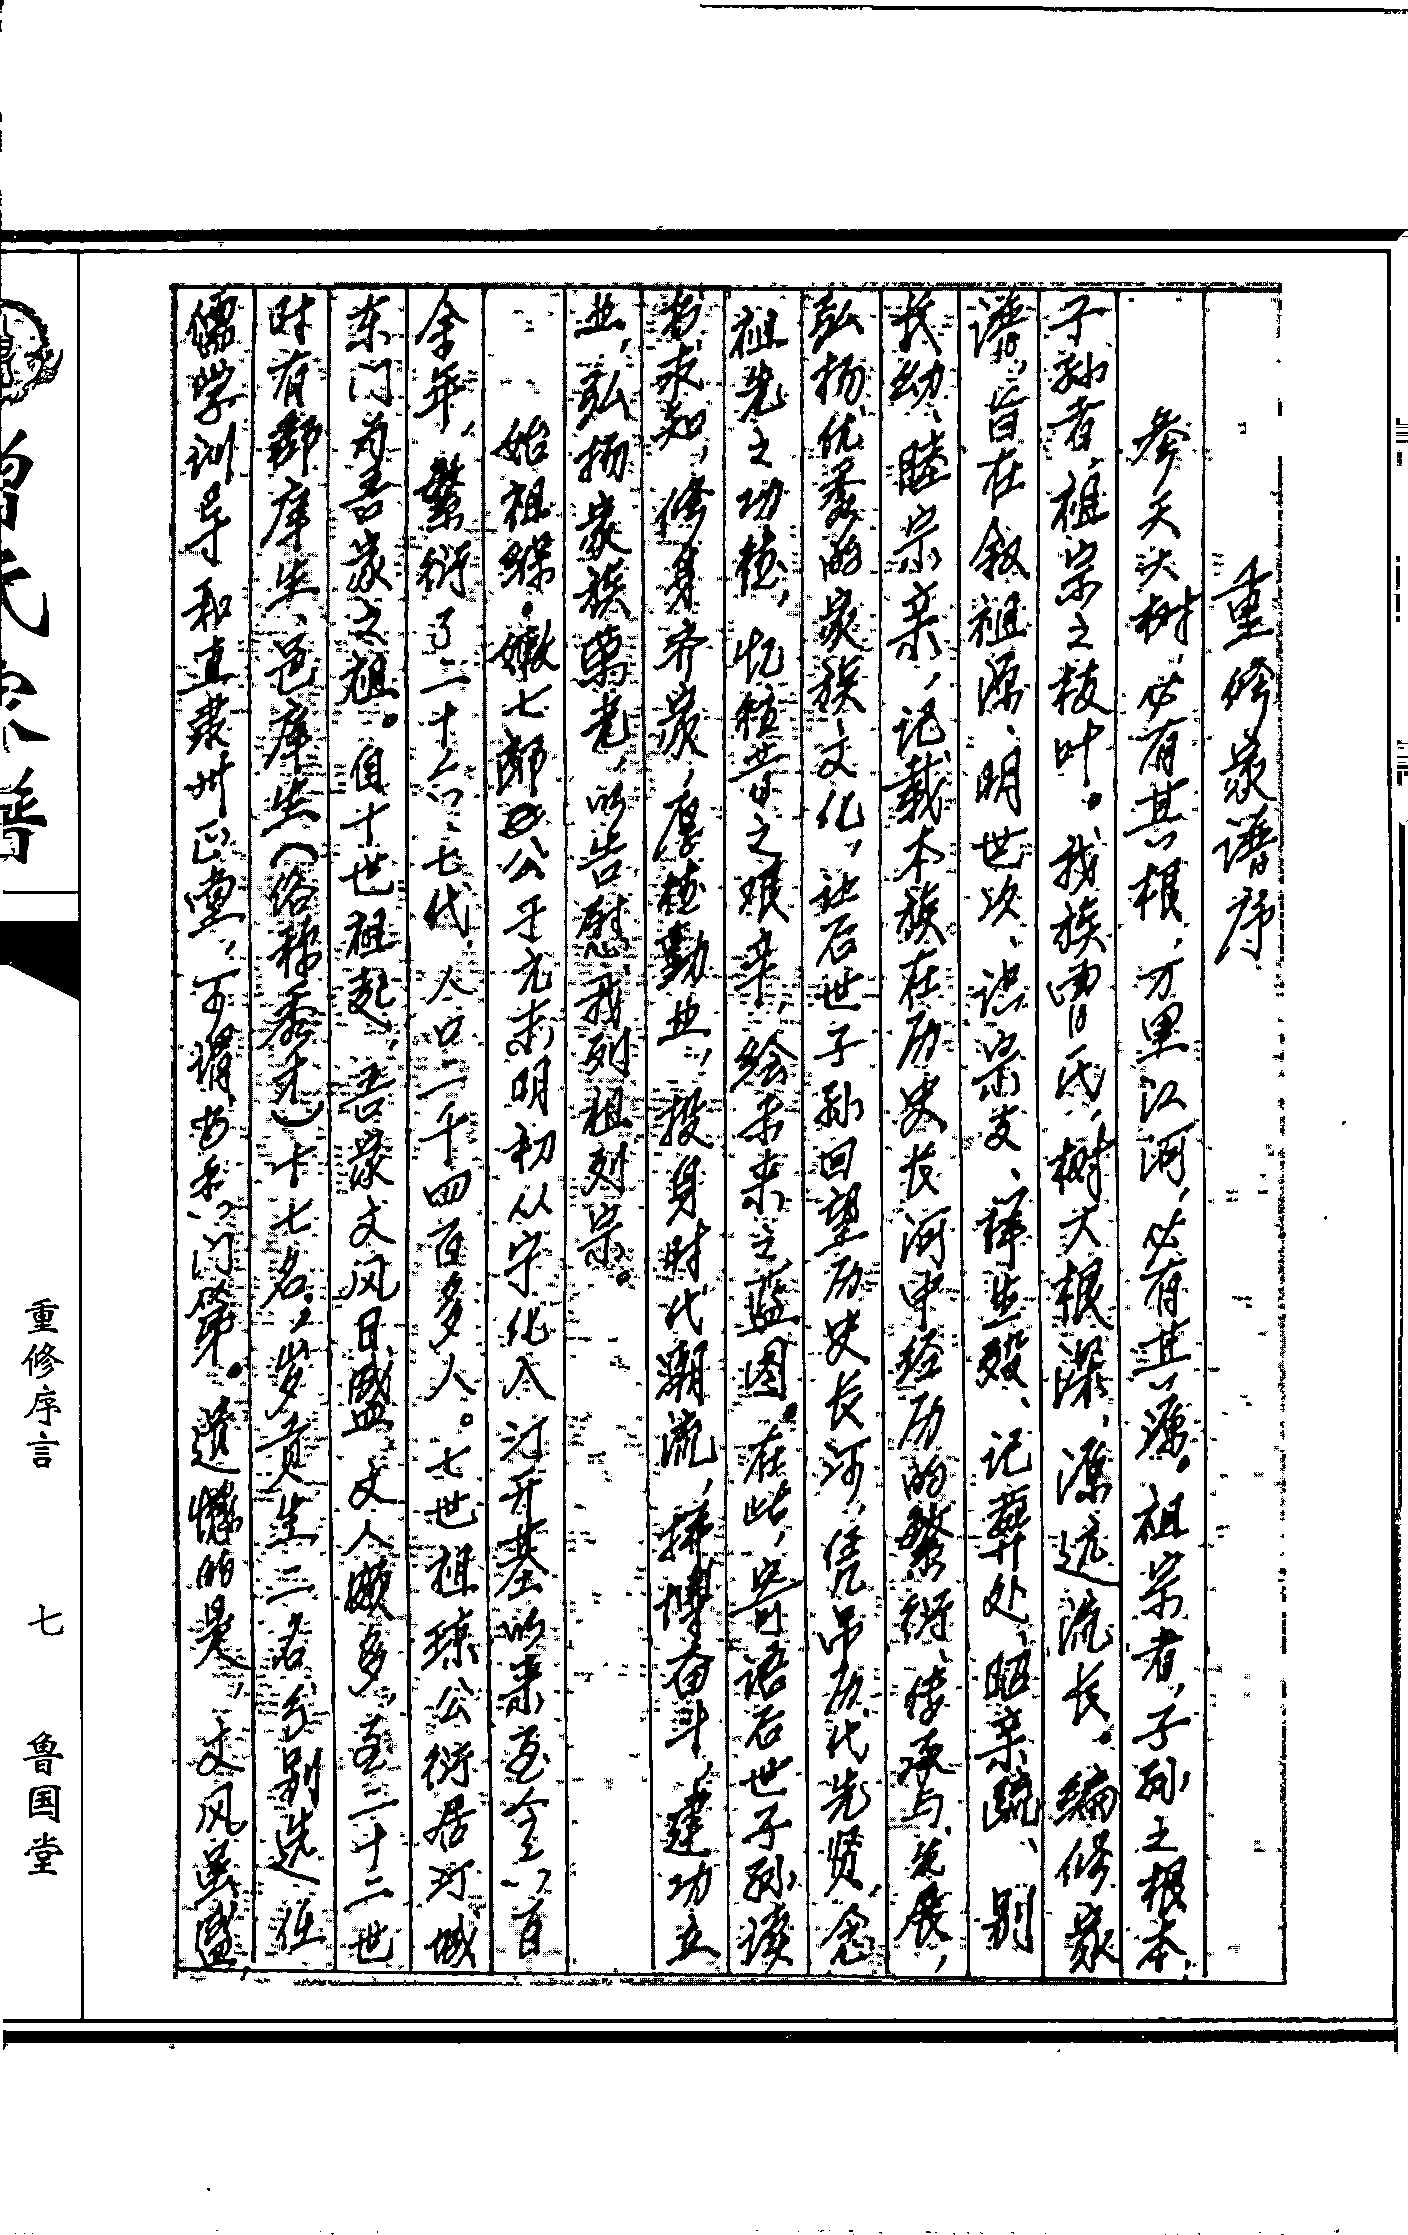 重修家谱序
参天大树，必有其根，万里江河，必有其源。祖宗者，子孙之根本，
子孙者，祖宗之枝叶。我族曾氏，树大根深，源远流长。编修家
谱，旨在叙祖源、明世次、识宗支、详生殁、记葬处、晒亲疏、别
长幼、睦宗亲，记载本族在历史长河中经历的繁衍、传承与发展，
弘扬优秀的家族文化，让后世子孙回望历史长河，凭吊历代先贤，念
祖先之功德，忆稙昔之艰辛，绘未来之蓝图。在此，寄语后世子孙读
书求知，修身齐家，厚德勤业，投身时代潮流，拼博奋斗，建功立
业，弘扬家族萬老，以告慰我列祖列宗。
始祖緤・嫩七郎公于元末明初从宁化入汀开基以来至今，六百
余年，繁衍了二十六、七代，人口二千四百多人。七世祖琼公衍居河城
东门为吾家之祖。自十世祖起，吾家文风日盛，文人颇多，至二十二世
时有郡庠生、邑庠生（俗称秀才）十七名，岁贡生二名分别选任
儒学训导和直隶州正堂，可谓书香门第。遗憾的是，文风虽盛，
曾氏宗谱
重修序言
七
鲁国堂